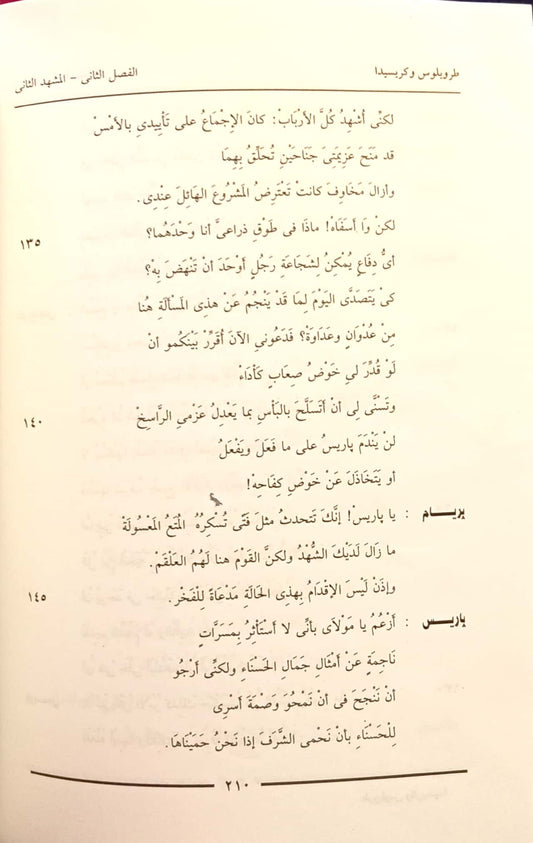 طرويلوس وكريسيدا
الفصل الثانى - المشهد الثانى
لكنِّى أُشْهِدُ كُلَّ الأَرْبَابْ: كانَ الإِجْمَاعُ على تَأْيِيدى بالأَمْسْ
قد مَنَحَ عَزِيمَتِىَ جَنَاحَيْنِ تُحَلِّقُ بِهِمَا
وأزالَ مَخَاوِفَ كانتْ تَعْتَرِضُ المَشْرُوعَ الهَائِلَ عِنْدِى.
لكنْ وَا أَسَفَاهْ! ماذَا فى طَوْقِ ذراعىَّ أنا وَحْدَهُما؟ ١٣٥
أىُّ دِفَاعٍ يُمْكنُ لِشجَاعَةِ رَجُلٍ أَوْحَدَ أنْ تَنْهَضَ بِهْ؟
كىْ يَتَصَدَّى اليَوْمَ لِمَا قَدْ يَنْجُمُ عَنْ هذِى المَسْأَلَةِ هُنا
مِنْ عُدْوَانٍ وعَدَاوَةْ؟ فَدَعُونِى الآنَ أُقَرِّرْ بَيْنَكُمو أنْ
لَوْ قُدِّرَ لِى خَوْضُ صِعَابٍ كَأْدَاءْ
وتَسَنَّى لِى أنْ أَتَسَلَّحَ بالبَأْسِ بما يَعْدِلُ عَزْمِى الرَّاسِخْ ١٤٠
لنْ يَنْدَمَ پاريسُ على ما فَعَلَ ويَفْعَلُ
أو يَتَخَاذَلَ عَنْ خَوْضِ كِفَاحِهْ!
پريام : يا پاريسْ! إنَّكَ تَتَحدثُ مثلَ فَتًى تُسْكِرُهُ المُتَعُ المَعْسُولَةْ
ما زَالَ لَدَيْكَ الشُّهْدُ ولكنَّ القَوْمَ هنا لَهُمُ العَلْقَمْ.
وإذَنْ لَيْسَ الإِقْدَامُ بِهذِى الحَالَةِ مَدْعَاةً لِلْفَخْرِ. ١٤٥
پاريس : أَزْعُمُ يا مَوْلَاىَ بأنِّى لا أَسْتَأْثِرُ بِمَسَرَّاتٍ
نَاجِمَةٍ عَنْ أَمْثَالِ جَمَالِ الحَسْنَاءِ ولكنى أَرْجُو
أنْ نَنْجَحَ فى أنْ نَمْحُوَ وَصْمَةَ أَسْرِى
لِلْحَسْنَاءِ بأنْ نَحْمى الشَّرَفَ إذا نَحْنُ حَمَيْنَاهَا.
٢١٠